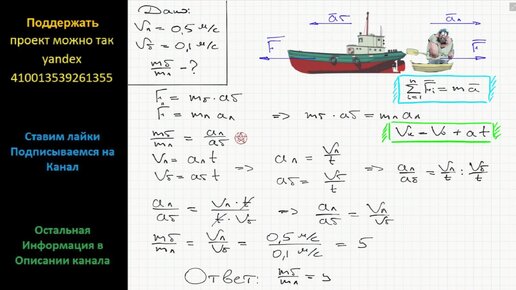 Поддержать
проект можно так
yandex
410013539261355
Ставим лайки
Подписываемся на
Канал
Остальная
Информация в
Описании канала
Дано:
Vл = 0,5 м/с
Vб = 0,1 м/с
mб/mл - ?
aб
aл
F
F
Σ Fi = ma
i=1
n
Vк = Vo + at
F = mб · aб
F = mл aл
=> mб · aб = mл aл
mб/mл = aл/aб
Vл = aл t
Vб = aб t
=> aл = Vл/t
aб = Vб/t
=> aл/aб = Vл/t : Vб/t
aл/aб = Vл · t / t · Vб => aл/aб = Vл/Vб
mб/mл = Vл/Vб = 0,5 м/с / 0,1 м/с = 5
Ответ: mб/mл = 5